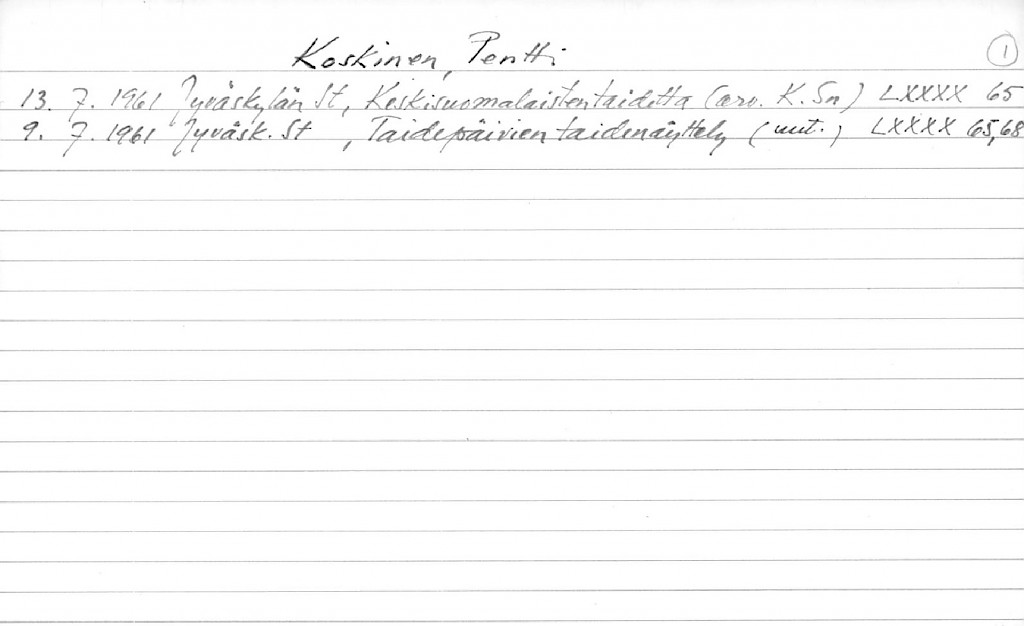 Koskinen, Pentti 1
13. 7. 1961 Jyväskylän St, Keskisuomalaisten taidetta (arv. K. Sn) LXXXX 65
9. 7. 1961 Jyväsk. St, Taidepäivien taidenäyttely (uut.) LXXXX 65,68